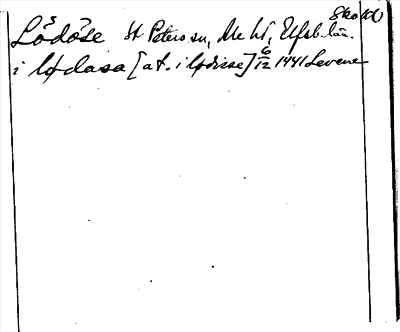 Sko 100
Lödöse St Peters sn, Ale hd, Elfsb. län.
i lødasa [at. i lødisse] 6/12 1441 Levene